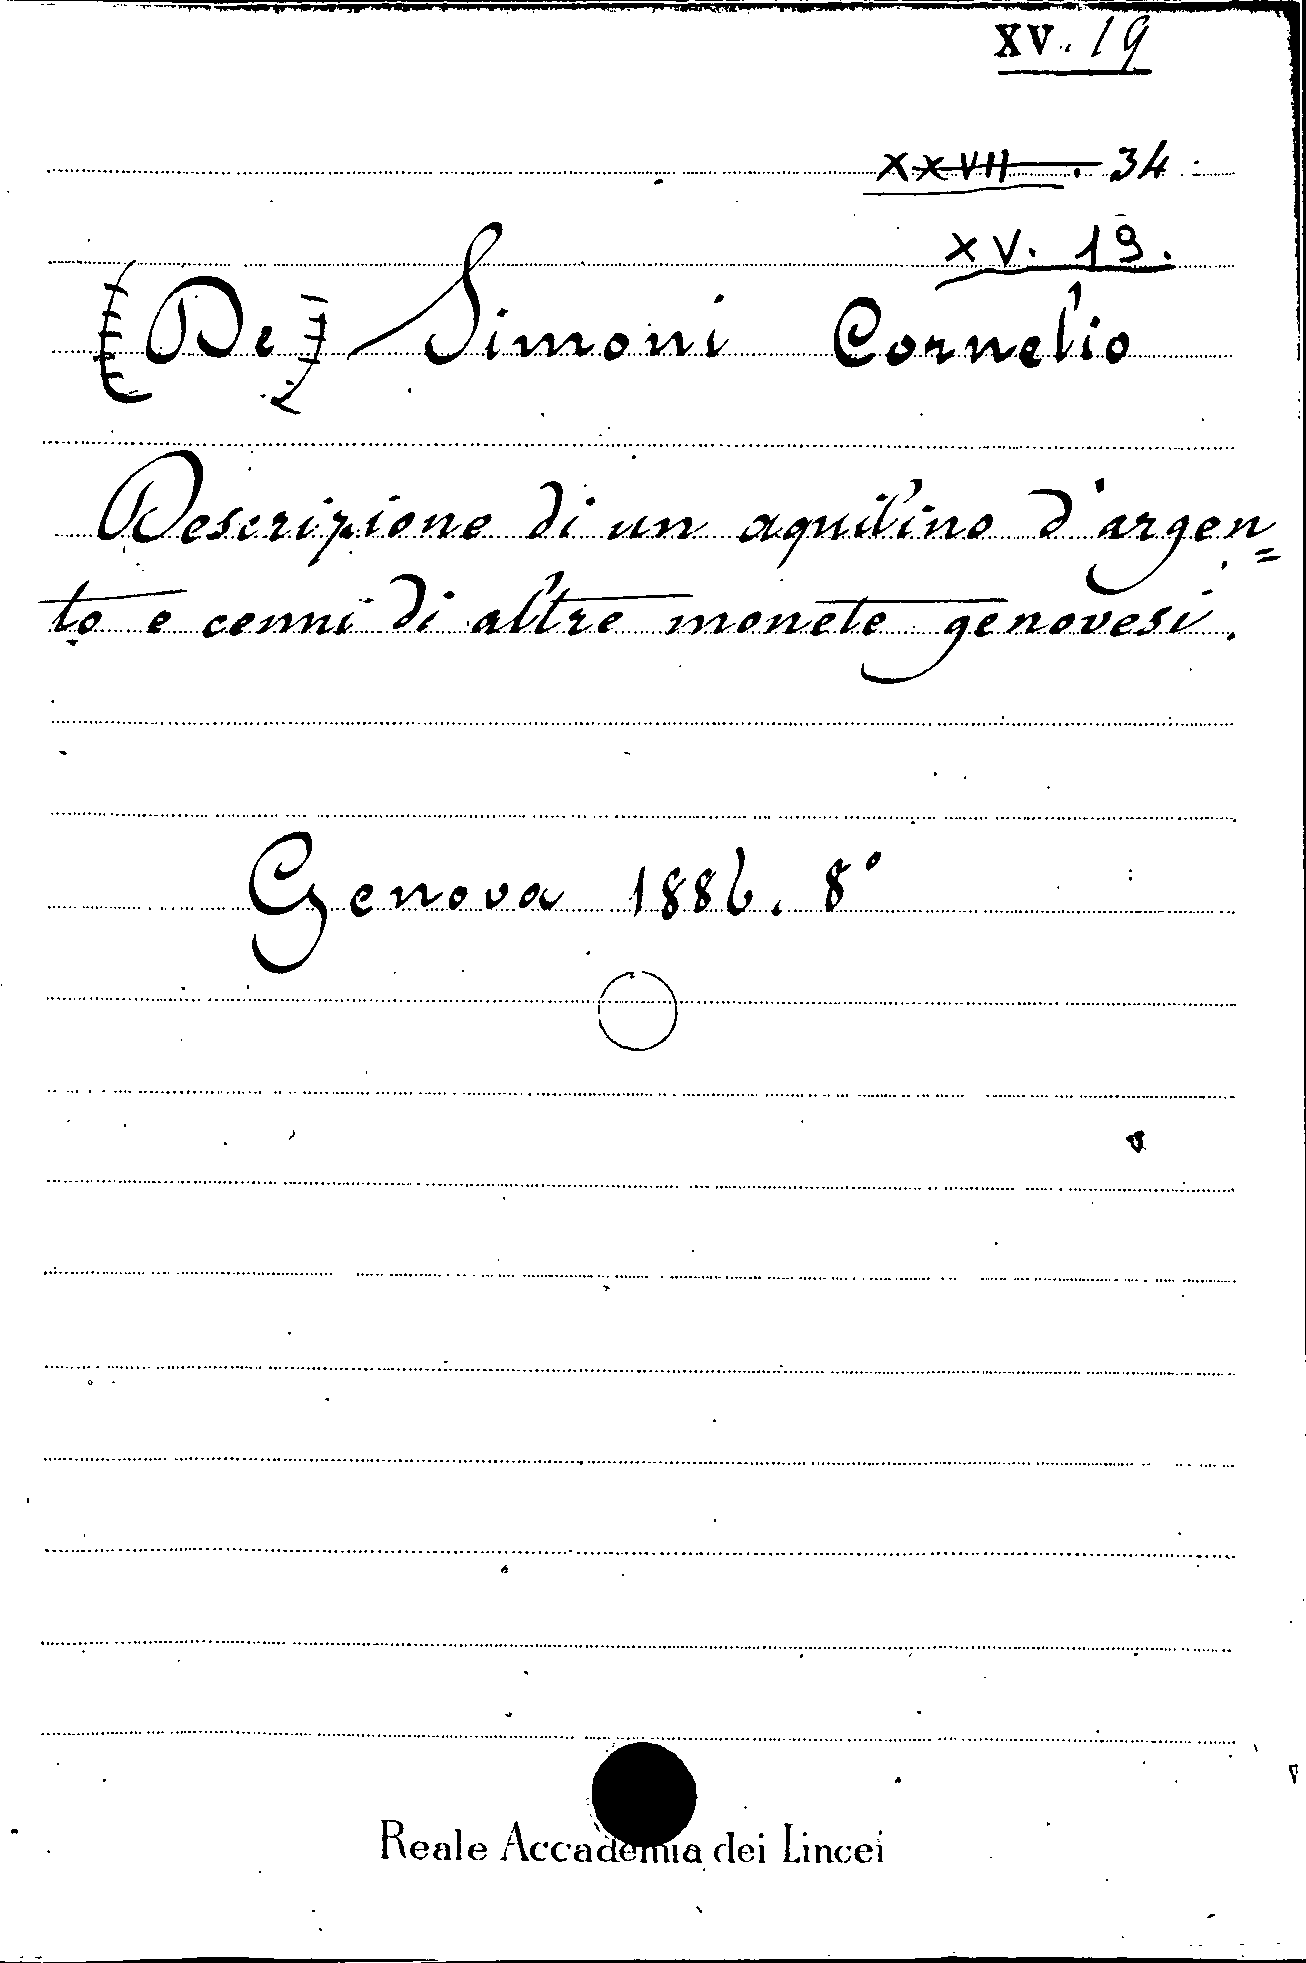 XV. 19
XXVII . 34
XV. 19.
(De) Simoni Cornelio
Descrizione di un aquilino d'argen=
to e cenni di altre monete genovesi.
Genova 1886. 8°
Reale Accademia dei Lincei